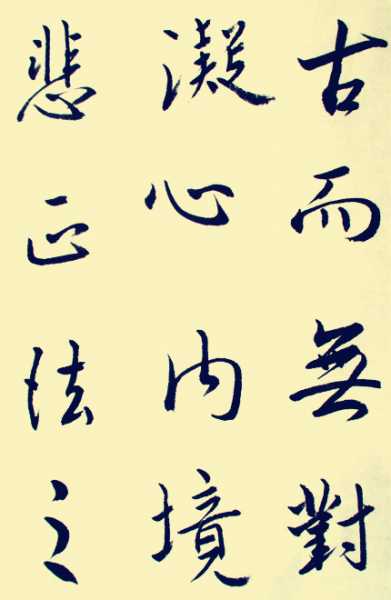 古而無對
凝心内境
悲正法之